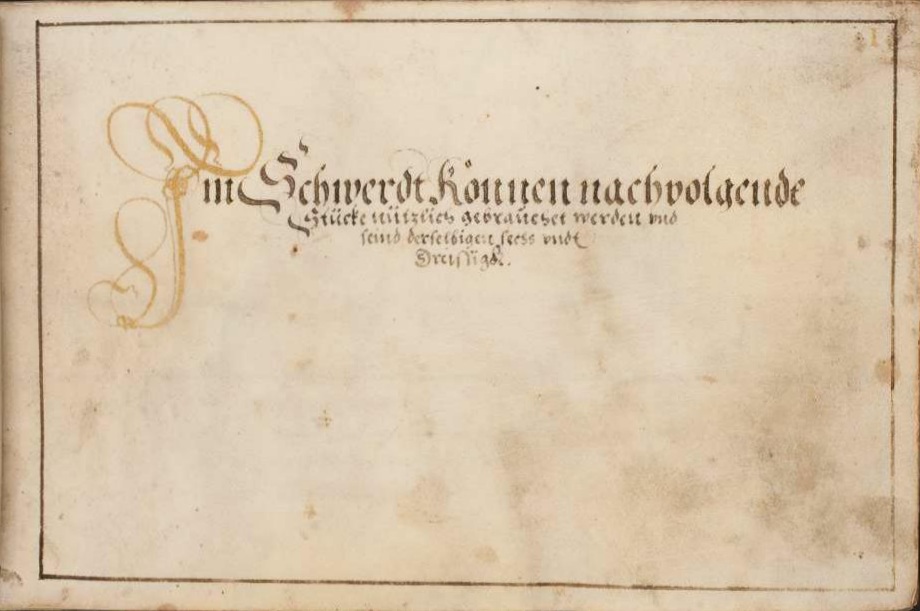 1
Im Schwerdt Können nachvolgende
Stücke nützlich gebrauchet werden vnd
seind derselbigen sechs vndt
Dreissigk.